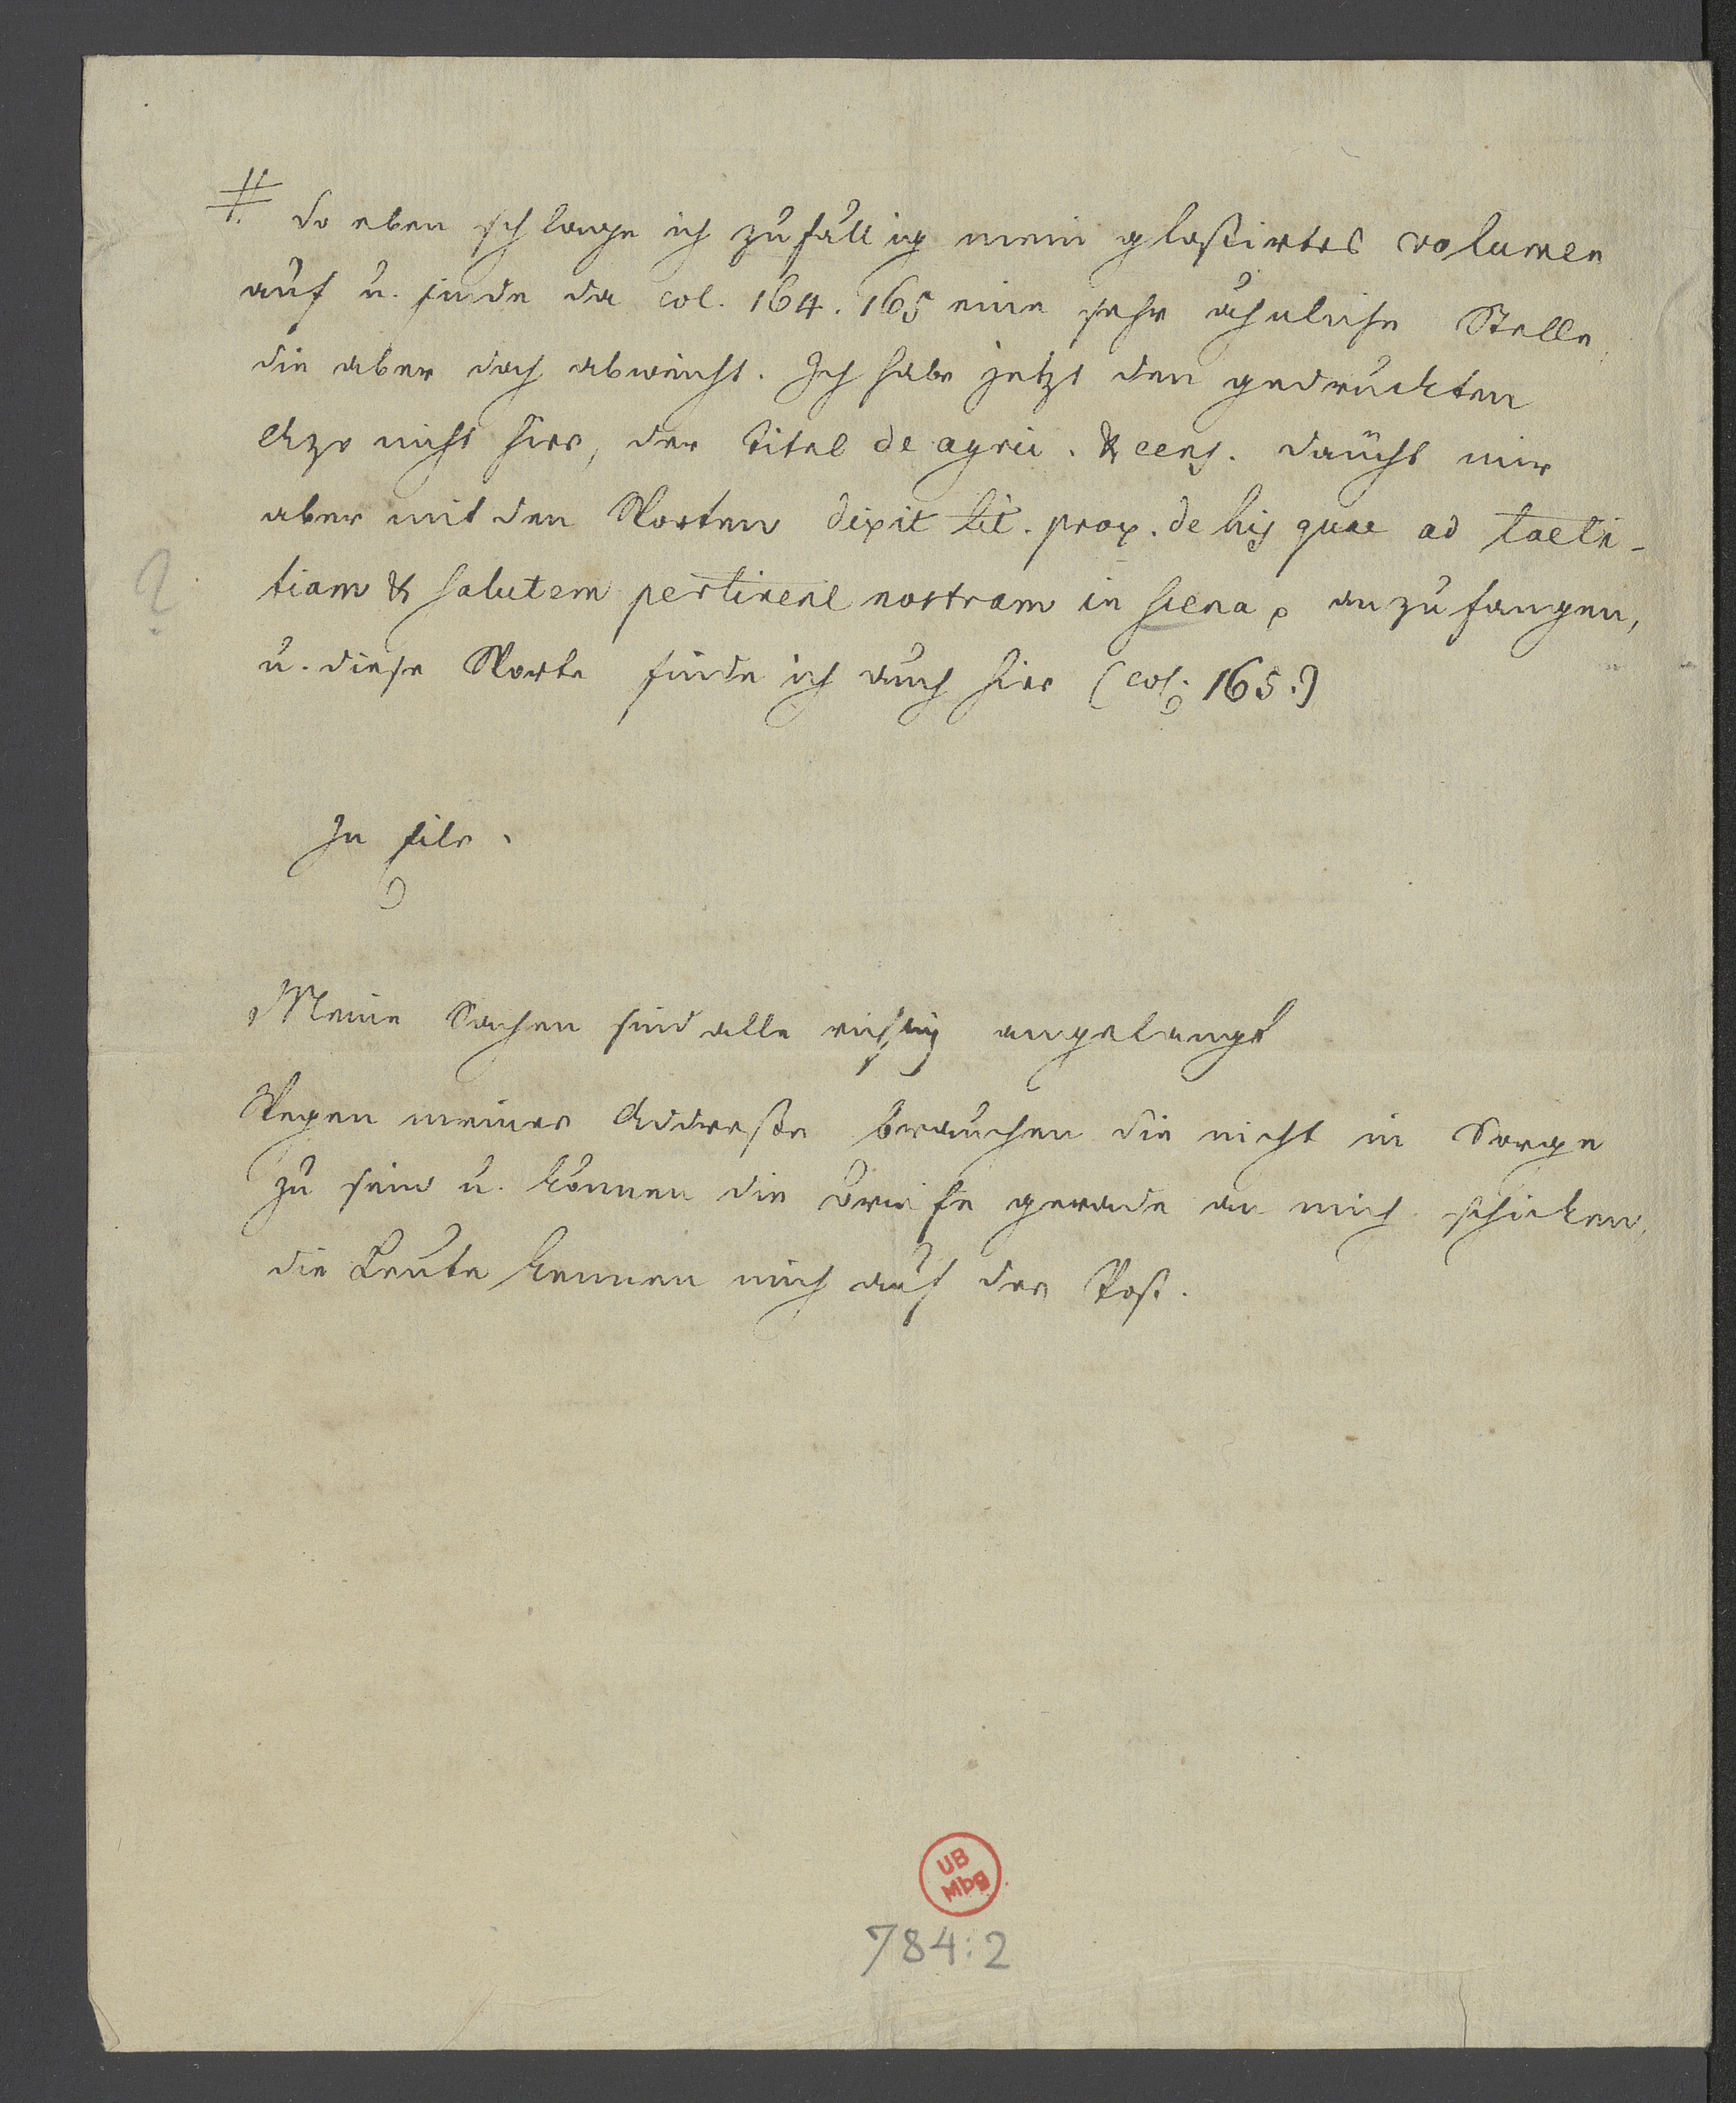 # So eben schlage ich zufällig mein gloßirtes volumen
auf u. finde da col. 164. 165 eine sehr ähnliche Stelle,
die aber doch abweicht. Ich habe jetzt den gedruckten
Azo nicht hier, der Titel de agric. & cens. däucht mir
aber mit den Worten dixit tit. prox. de his quae ad laeti-
tiam & salutem pertinent nostram in scena p anzufangen,
u. diese Worte finde ich auch hier (col. 165.)
?
In Eile.
Meine Sachen sind alle richtig angelangt
Wegen meiner Addreße brauchen Sie nicht in Sorge
zu sein u. können die Briefe gerade an mich schicken,
die Leute kennen mich auf der Post.
UB
Mbg
784:2